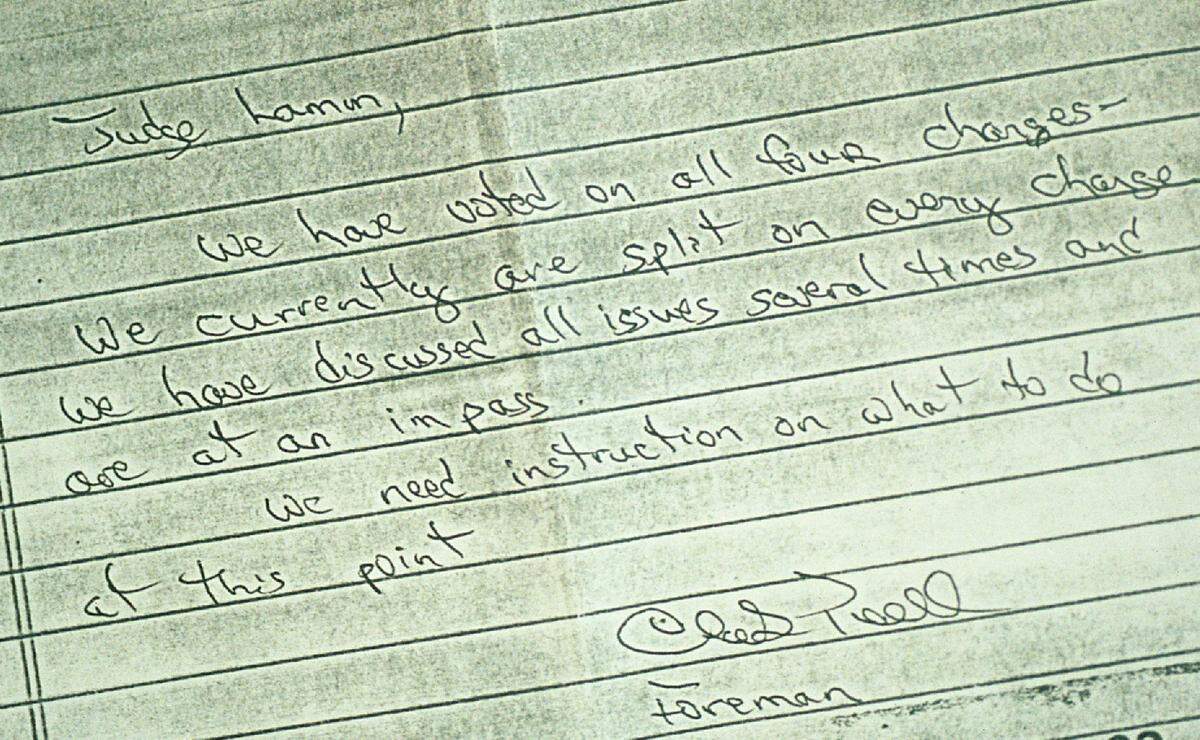 Judge Lamm,
We have voted on all four charges-
We currently are split on every charge
We have discussed all issues several times and
are at an impass.
We need instruction on what to do
at this point
Foreman